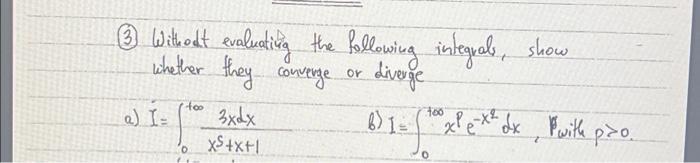 ③ Withodt evaluating the following integrals, show
whether they converge or diverge
a) I = ∫₀^{+∞} 3xdx / x⁵+x+1 b) I = ∫₀^{+∞} x^p e^{-x²} dx, with p>0.